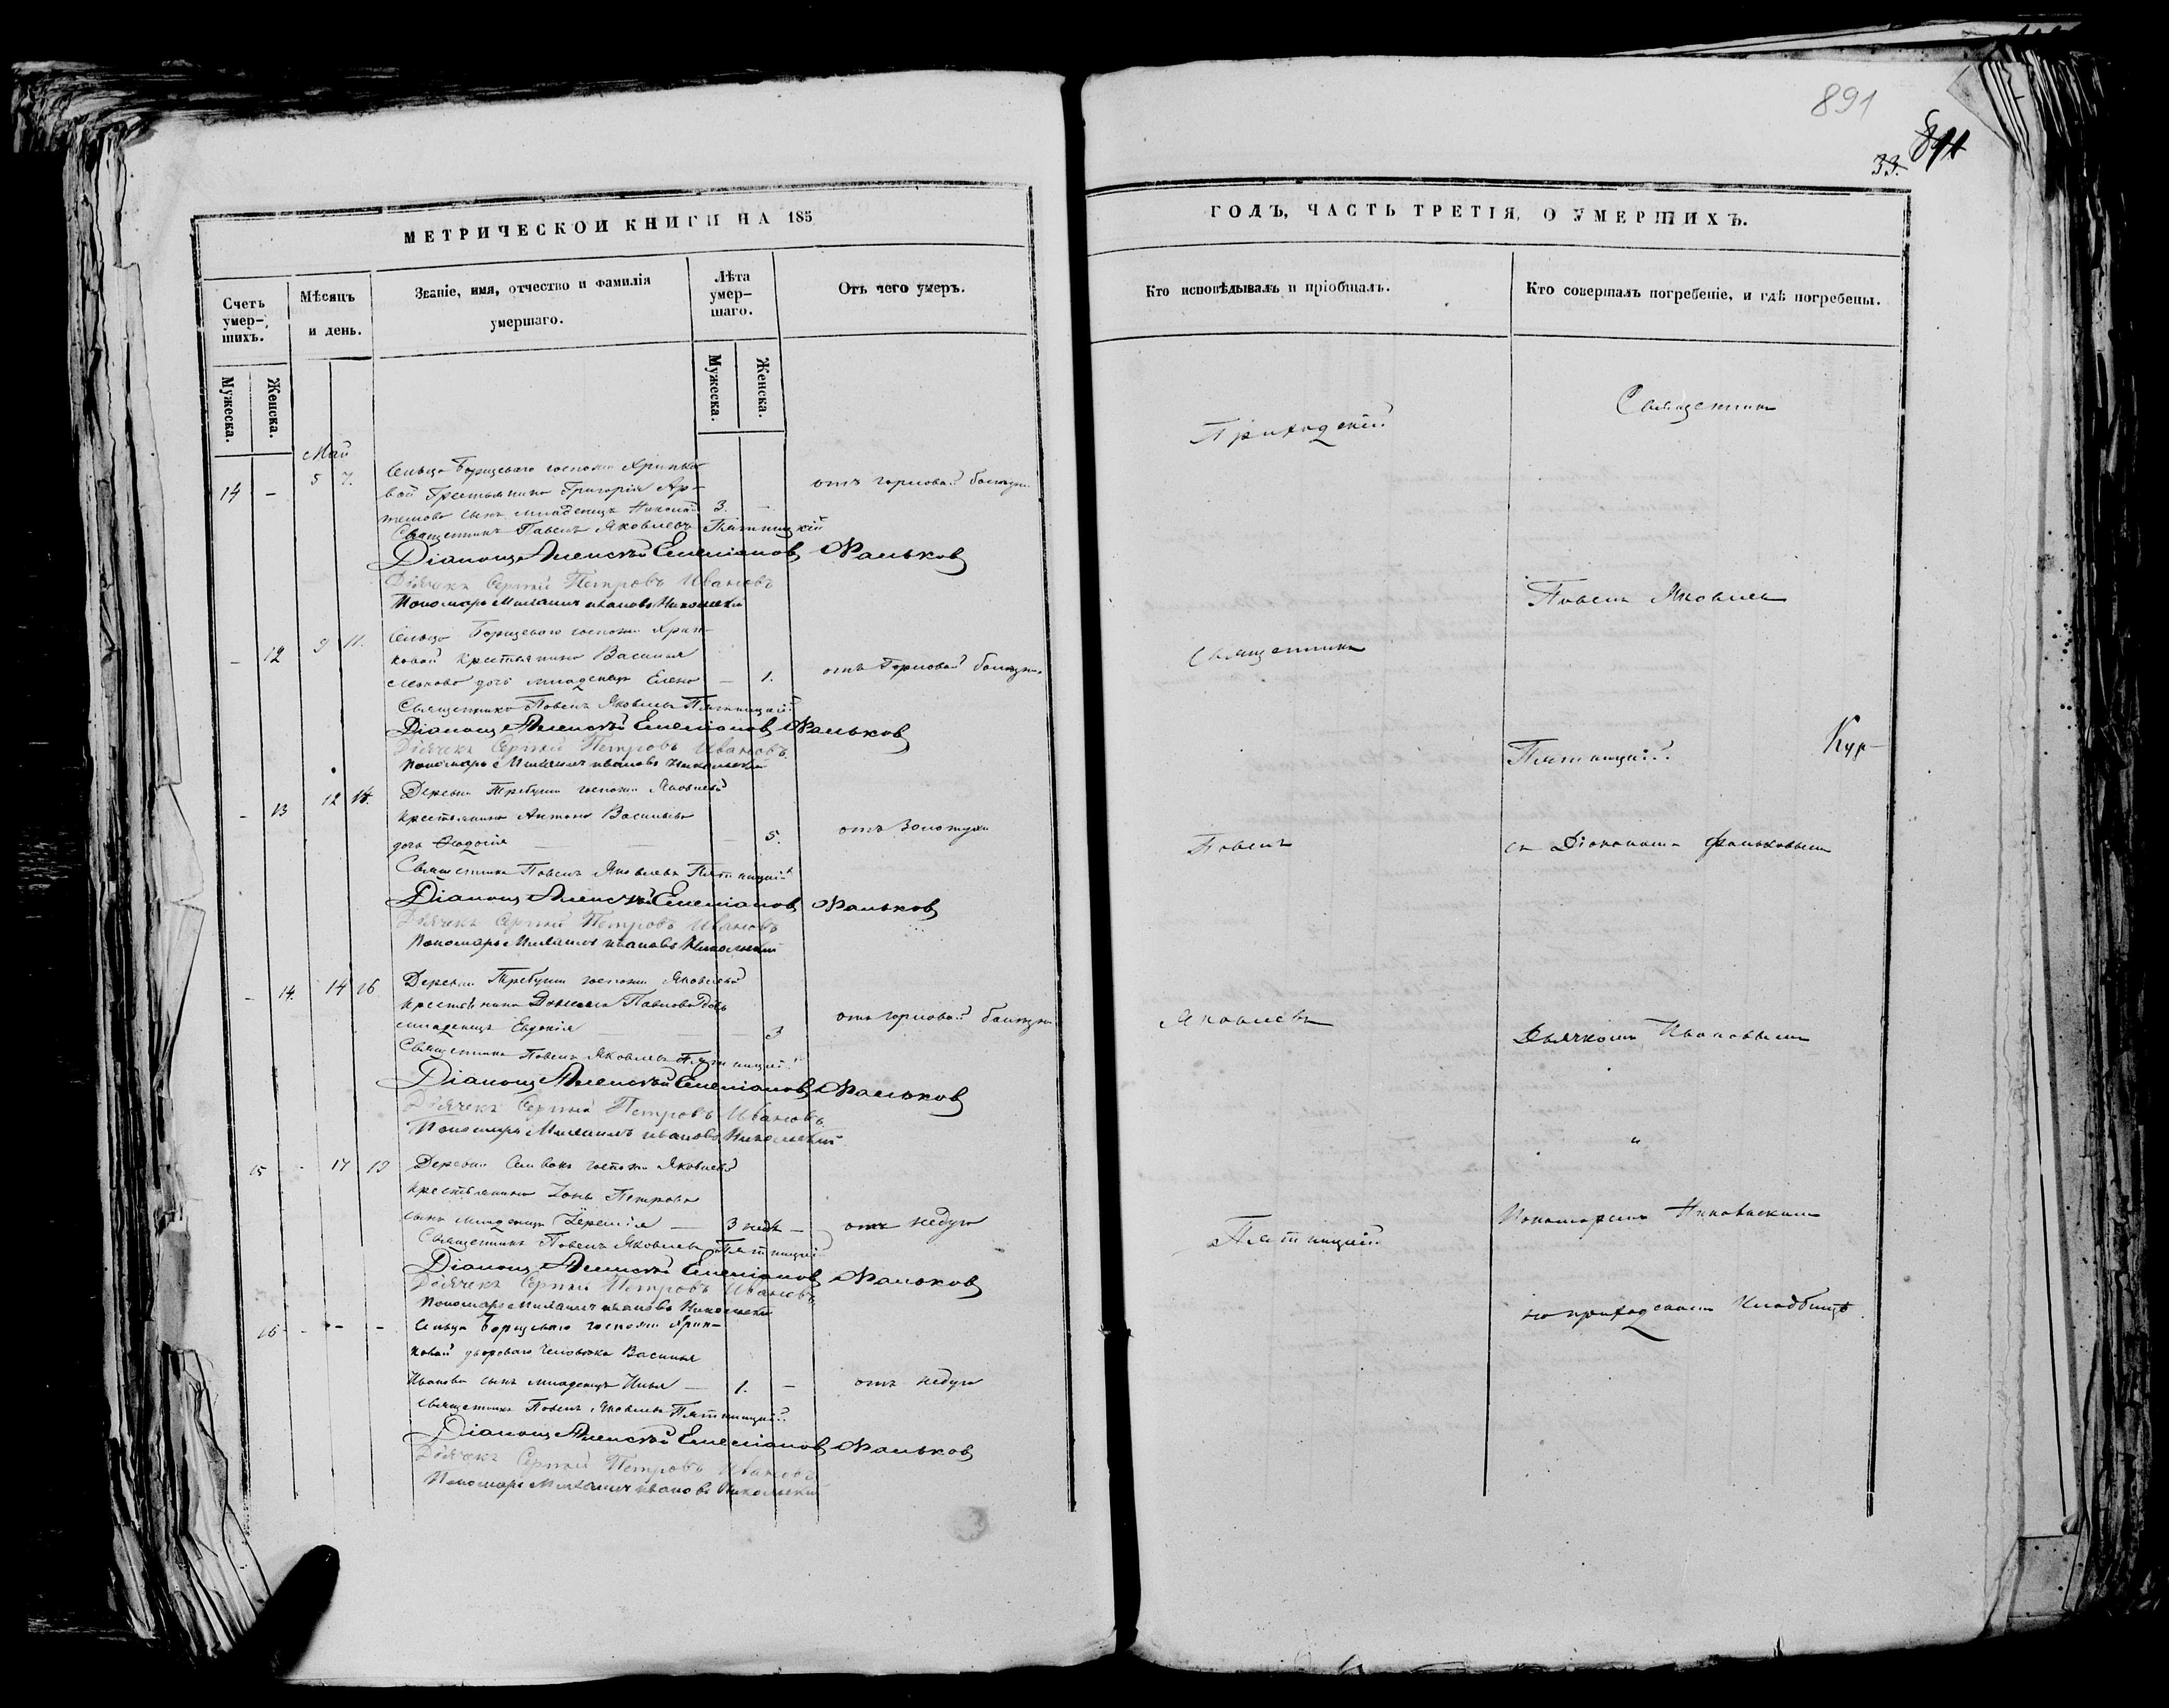 891
33.
МЕТРИЧЕСКОЙ КНИГИ НА 185
Счетъ умер-шихъ.
Мѣсяцъ и день.
Званіе, имя, отчество и фамилія умершаго.
Лѣта умер-шаго.
Отъ чего умеръ.
Мужеска.
Женска.
Мужеска.
Женска.
Май
14 - 5 7. Сельца Борщеваго госпожи Хрипко-
вой крестьянина Григорія Ар-
темова сынъ младенецъ Николай 3. - отъ горловой болезни
Священникъ Павелъ Яковлевъ Пятницкій
Діаконъ Алексѣй Емеліановъ Фальковъ
Дьячекъ Сергѣй Петровъ Ивановъ
Пономарь Михаилъ Ивановъ Никольскій
- 12 9 11. Сельца Борщеваго госпожи Хрип-
ковой крестьянина Василья
дочь младенецъ Елена - 1. отъ горловой болезни
Священникъ Павелъ Яковлевъ Пятницкій
Діаконъ Алексѣй Емеліановъ Фальковъ
Дьячекъ Сергѣй Петровъ Ивановъ
Пономарь Михаилъ Ивановъ Никольскій
- 13 12 14. Деревни госпожи Яковлевой
крестьянина Антона Васильева
дочь Ѳеодосія - 5. отъ золотухи
Священникъ Павелъ Яковлевъ Пятницкій
Діаконъ Алексѣй Емеліановъ Фальковъ
Дьячекъ Сергѣй Петровъ Ивановъ
Пономарь Михаилъ Ивановъ Никольскій
- 14. 14 16 Деревни госпожи Яковлевой
крестьянина Павлова дочь
младенецъ Евдокія - 3 отъ горловой болезни
Священникъ Павелъ Яковлевъ Пятницкій
Діаконъ Алексѣй Емеліановъ Фальковъ
Дьячекъ Сергѣй Петровъ Ивановъ
Пономарь Михаилъ Ивановъ Никольскій
15 - 17 19 Деревни госпожи Яковлевой
крестьянина Петрова
сынъ младенецъ Іеремія - 3 нед - отъ недуга
Священникъ Павелъ Яковлевъ Пятницкій
Діаконъ Алексѣй Емеліановъ Фальковъ
Дьячекъ Сергѣй Петровъ Ивановъ
Пономарь Михаилъ Ивановъ Никольскій
16 - - - Сельца Борщеваго госпожи Хрип-
ковой двороваго человѣка Василья
Иванова сынъ младенецъ Илья - 1. - отъ недуга
Священникъ Павелъ Яковлевъ Пятницкій
Діаконъ Алексѣй Емеліановъ Фальковъ
Дьячекъ Сергѣй Петровъ Ивановъ
Пономарь Михаилъ Ивановъ Никольскій
ГОДЪ, ЧАСТЬ ТРЕТІЯ, О УМЕРШИХЪ.
Кто исповѣдывалъ и пріобщалъ.
Кто совершалъ погребеніе, и гдѣ погребены.
Приходскій
Священникъ
Павелъ
Яковлевъ
Пятницкій
Священникъ
Павелъ Яковлевъ
Пятницкій
Кур-
съ Діакономъ Фальковымъ
Дьячкомъ Ивановымъ
Пономаремъ Никольскимъ
на приходскомъ кладбищѣ.